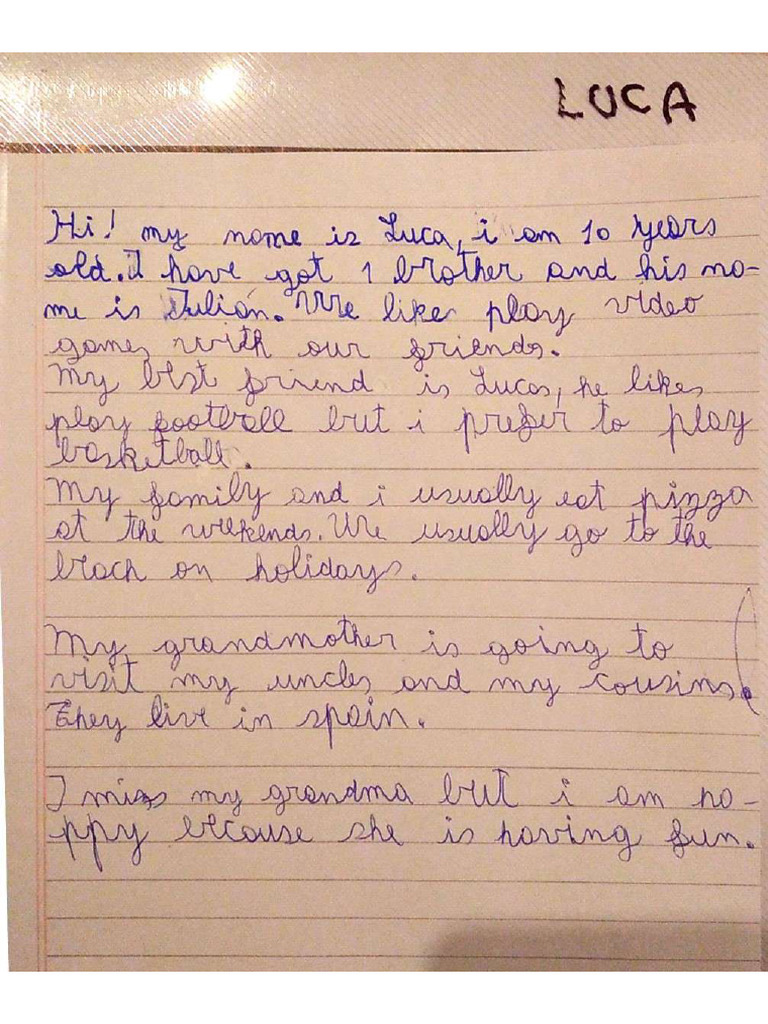 LUCA
Hi! my name is Luca, i am 10 years
old. I have got 1 brother and his na-
me is Julián. We like play video
games with our friends.
My best friend is Lucas, he likes
play football but i prefer to play
basketball.
My family and i usually eat pizza
at the weekends. We usually go to the
beach on holidays.
My grandmother is going to
visit my uncles and my cousins.
They live in spain.
I miss my grandma but i am ha-
ppy because she is having fun.